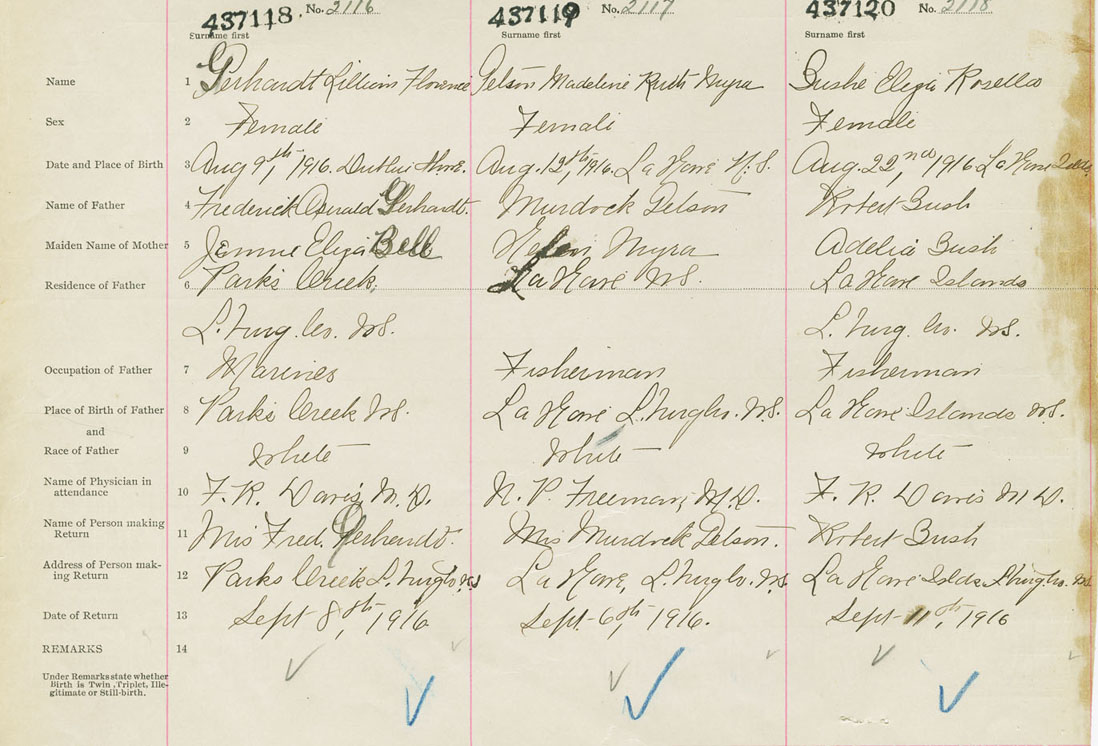 437118 No. 2116 437119 No. 2117 437120 No. 2118
Surname first Surname first Surname first
Name 1 Gerhardt Lillian Florence Pelson Madeline Ruth Myra Bushe Eliza Rosella
Sex 2 Female Female Female
Date and Place of Birth 3 Aug 9th, 1916. Aug. 12th, 1916. La Have N.S. Aug. 22nd, 1916 La Have Islds.
Name of Father 4 Frederick Oswald Gerhardt. Murdock Pelson Robert Bush
Maiden Name of Mother 5 Jennie Eliza Bell Helen Myra Adelia Bush
Residence of Father 6 Parks Creek, La Have N.S. La Have Islands
L. N.S. L. N.S.
Occupation of Father 7 Marines Fisherman Fisherman
Place of Birth of Father 8 Parks Creek N.S. La Have N.S. La Have Islands N.S.
and
Race of Father 9 White White White
Name of Physician in
attendance 10 F. R. Davis, M.D. N. P. Freeman, M.D. F. R. Davis M D.
Name of Person making
Return 11 Mrs Fred. Gerhardt. Mrs Murdock Pelson. Robert Bush
Address of Person mak-
ing Return 12 Parks Creek N.S La Have, N.S La Have Islds N.S
Date of Return 13 Sept 8th, 1916 Sept. 6th, 1916. Sept 11th, 1916
REMARKS 14
Under Remarks state whether
Birth is Twin, Triplet, Ille-
gitimate or Still-birth.